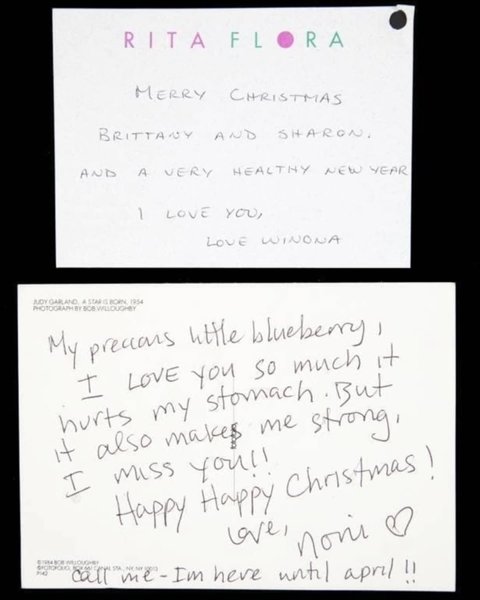 RITA FLORA
MERRY CHRISTMAS
BRITTANY AND SHARON.
AND A VERY HEALTHY NEW YEAR
I LOVE YOU,
LOVE WINONA
JUDY GARLAND, A STAR IS BORN, 1954
PHOTOGRAPH BY BOB WILLOUGHBY
My precious little blueberry,
I LOVE you so much it
hurts my stomach. But
it also makes me strong.
I miss you!!
Happy Happy Christmas!
Love,
Noni ♡
©1984 BOB WILLOUGHBY
©FOTOFOLIO, BOX 661 CANAL STA., NY, NY 10013
P142
Call me - Im here until april!!